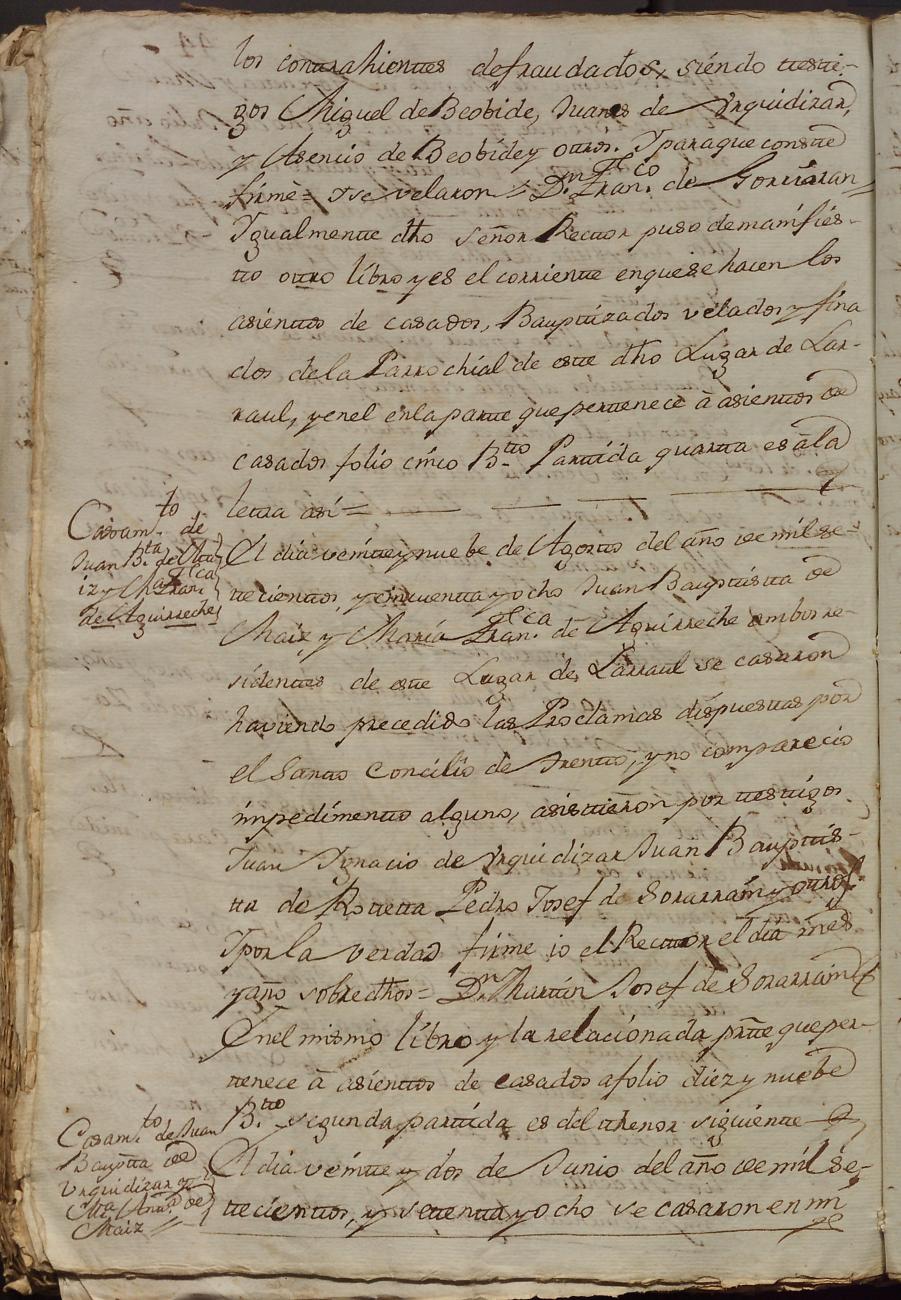 los contrahientes defraudados, siendo testi-
gos Miguel de Beobide, Juanes de Urquidizar,
y Asencio de Beobide y otros. Y para que conste
firmè = Y se velaron = D.n Fran.co de Goruaran =
Igualmente dho Señor Rector puso de manifies-
to otro libro y es el corriente en que se hacen los
asientos de casados, Bauptizados velados y fina
dos de la Parrochial de este dho Lugar de Lar-
raul, y en el en la parte que pertenece à asientos de
casados folio cinco B.to Partida quarta es à la
letra así =
Casam.to de
Juan B.ta de Ma
iz y M.a Fran.ca
de Aguirreche
El dia veinte y nuebe de Agosto del año de mil se-
tecientos, y cincuenta y ocho Juan Bauptista de
Maiz y Maria Fran.ca de Aguirreche ambos re-
sidentes de este Lugar de Larraul se casaron
haviendo precedido las Proclamas dispuestas por
el Santo Concilio de Trento, y no comparecio
impedimento alguno, asistieron por testigos
Juan Ygnacio de Urquidizar Juan Bauptis-
ta de Roteta Pedro Josef de Sorarrain y otros.
Y por la verdad firme io el Rector el dia mes
y año sobredhos = D.n Martin Josef de Sorarrain
En el mismo libro y la relacionada prte que per-
tenece à asientos de casados a folio diez y nuebe
B.to y segunda partida es del thenor siguiente
Casam.to de Juan
Baupta de
Urquidizar y
M.a Ant.a de
Maiz =
El dia veinte y dos de Junio del año de mil se-
tecientos, y setenta y ocho se casaron en mi